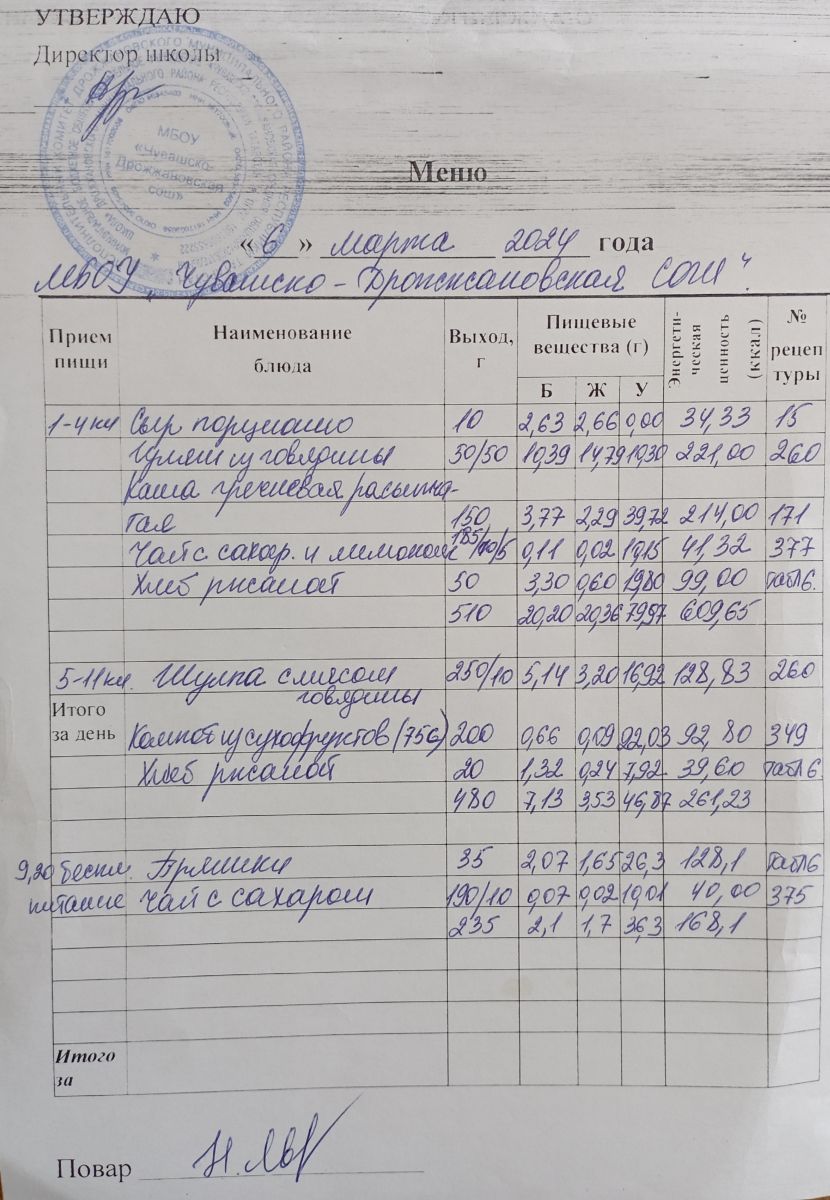 УТВЕРЖДАЮ
Директор школы
МБОУ
«Чувашско-
Дрожжановская
сош»
Меню
« 6 » марта 2024 года
МБОУ „Чувашско-Дрожжановская СОШ".
Прием пищи Наименование блюда Выход, г Пищевые вещества (г) Б Ж У Энергетическая ценность (ккал) № рецептуры
1-4 кл Сыр порционно 10 2,63 2,66 0,00 34,33 15
Гуляш из говядины 50/50 10,39 14,79 10,30 221,00 260
Каша гречневая рассыпча-
тая 150 3,77 2,29 39,72 214,00 171
Чай с сахар. и лимоном 185/10/5 0,11 0,02 10,15 41,32 377
Хлеб ржаной 50 3,30 0,60 19,80 99,00 табл6.
510 20,20 20,36 79,97 609,65
5-11 кл. Шулпа с мясом 250/10 5,14 3,20 16,92 128,83 260
говядины
Итого за день Компот из сухофруктов (75С) 200 0,66 0,09 22,03 92,80 349
Хлеб ржаной 20 1,32 0,24 7,92 39,60 табл6
480 7,13 3,53 46,87 261,23
9,20 беспл. Пряники 35 2,07 1,65 26,3 128,1 табл6
питание Чай с сахаром 190/10 0,07 0,02 10,01 40,00 375
235 2,1 1,7 36,3 168,1
Итого за
Повар